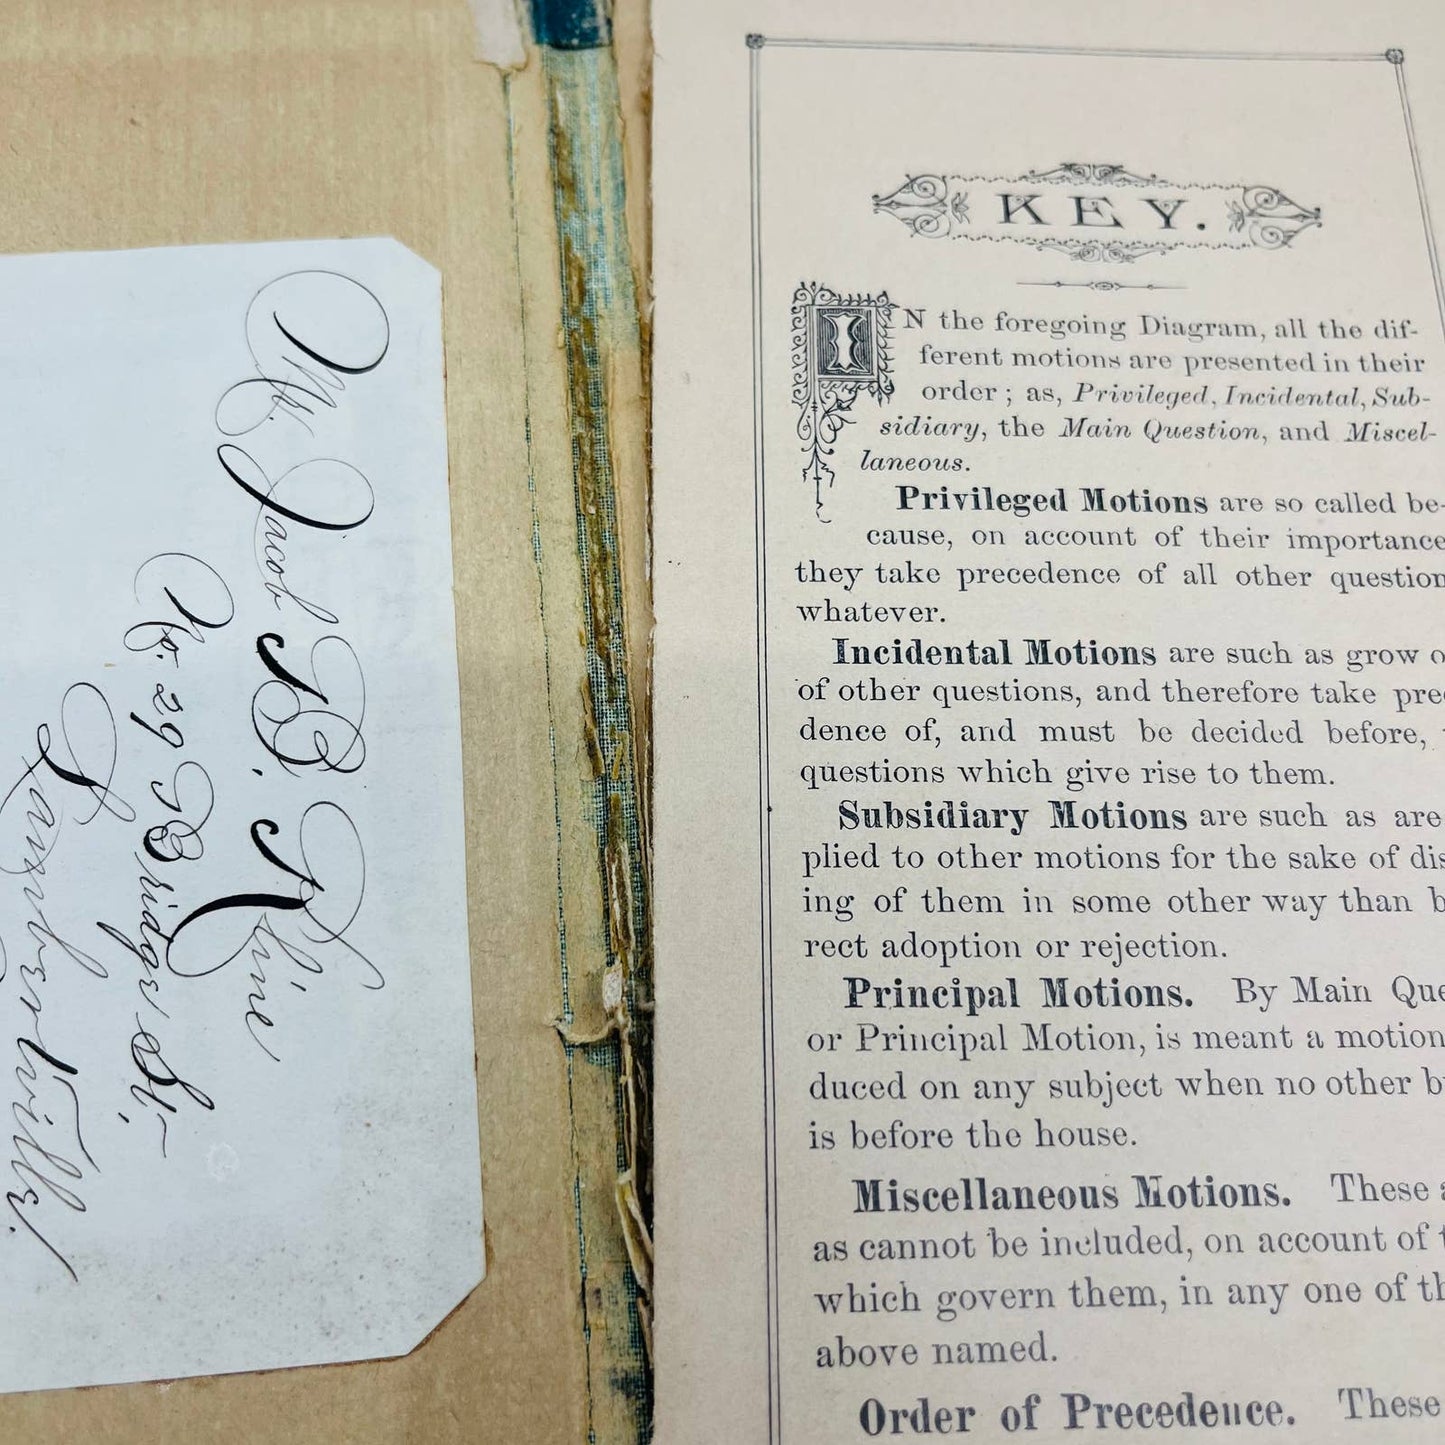 Mr. Jacob B. Kline
No. 29 Bridge St.
Lambertville!
KEY.
IN the foregoing Diagram, all the dif-
ferent motions are presented in their
order; as, Privileged, Incidental, Sub-
sidiary, the Main Question, and Miscel-
laneous.
Privileged Motions are so called be-
cause, on account of their importance
they take precedence of all other question
whatever.
Incidental Motions are such as grow o
of other questions, and therefore take pre
dence of, and must be decided before,
questions which give rise to them.
Subsidiary Motions are such as are
plied to other motions for the sake of dis
ing of them in some other way than b
rect adoption or rejection.
Principal Motions. By Main Que
or Principal Motion, is meant a motion
duced on any subject when no other b
is before the house.
Miscellaneous Motions. These a
as cannot be included, on account of t
which govern them, in any one of th
above named.
Order of Precedence. These